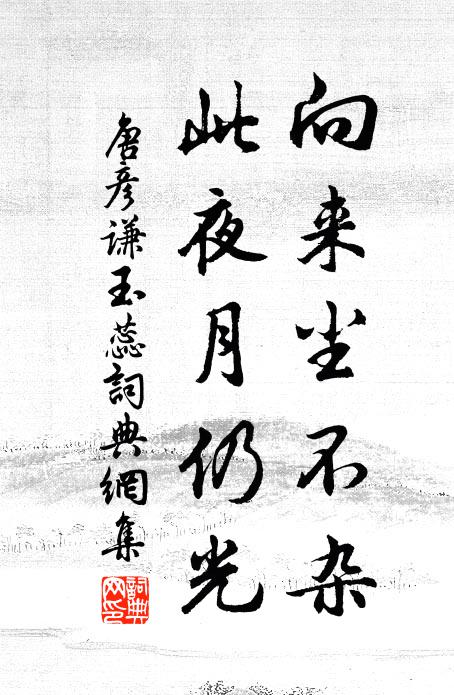 向来尘不杂
此夜月仍光
唐彦谦玉蕊詞典網集
詞典網印